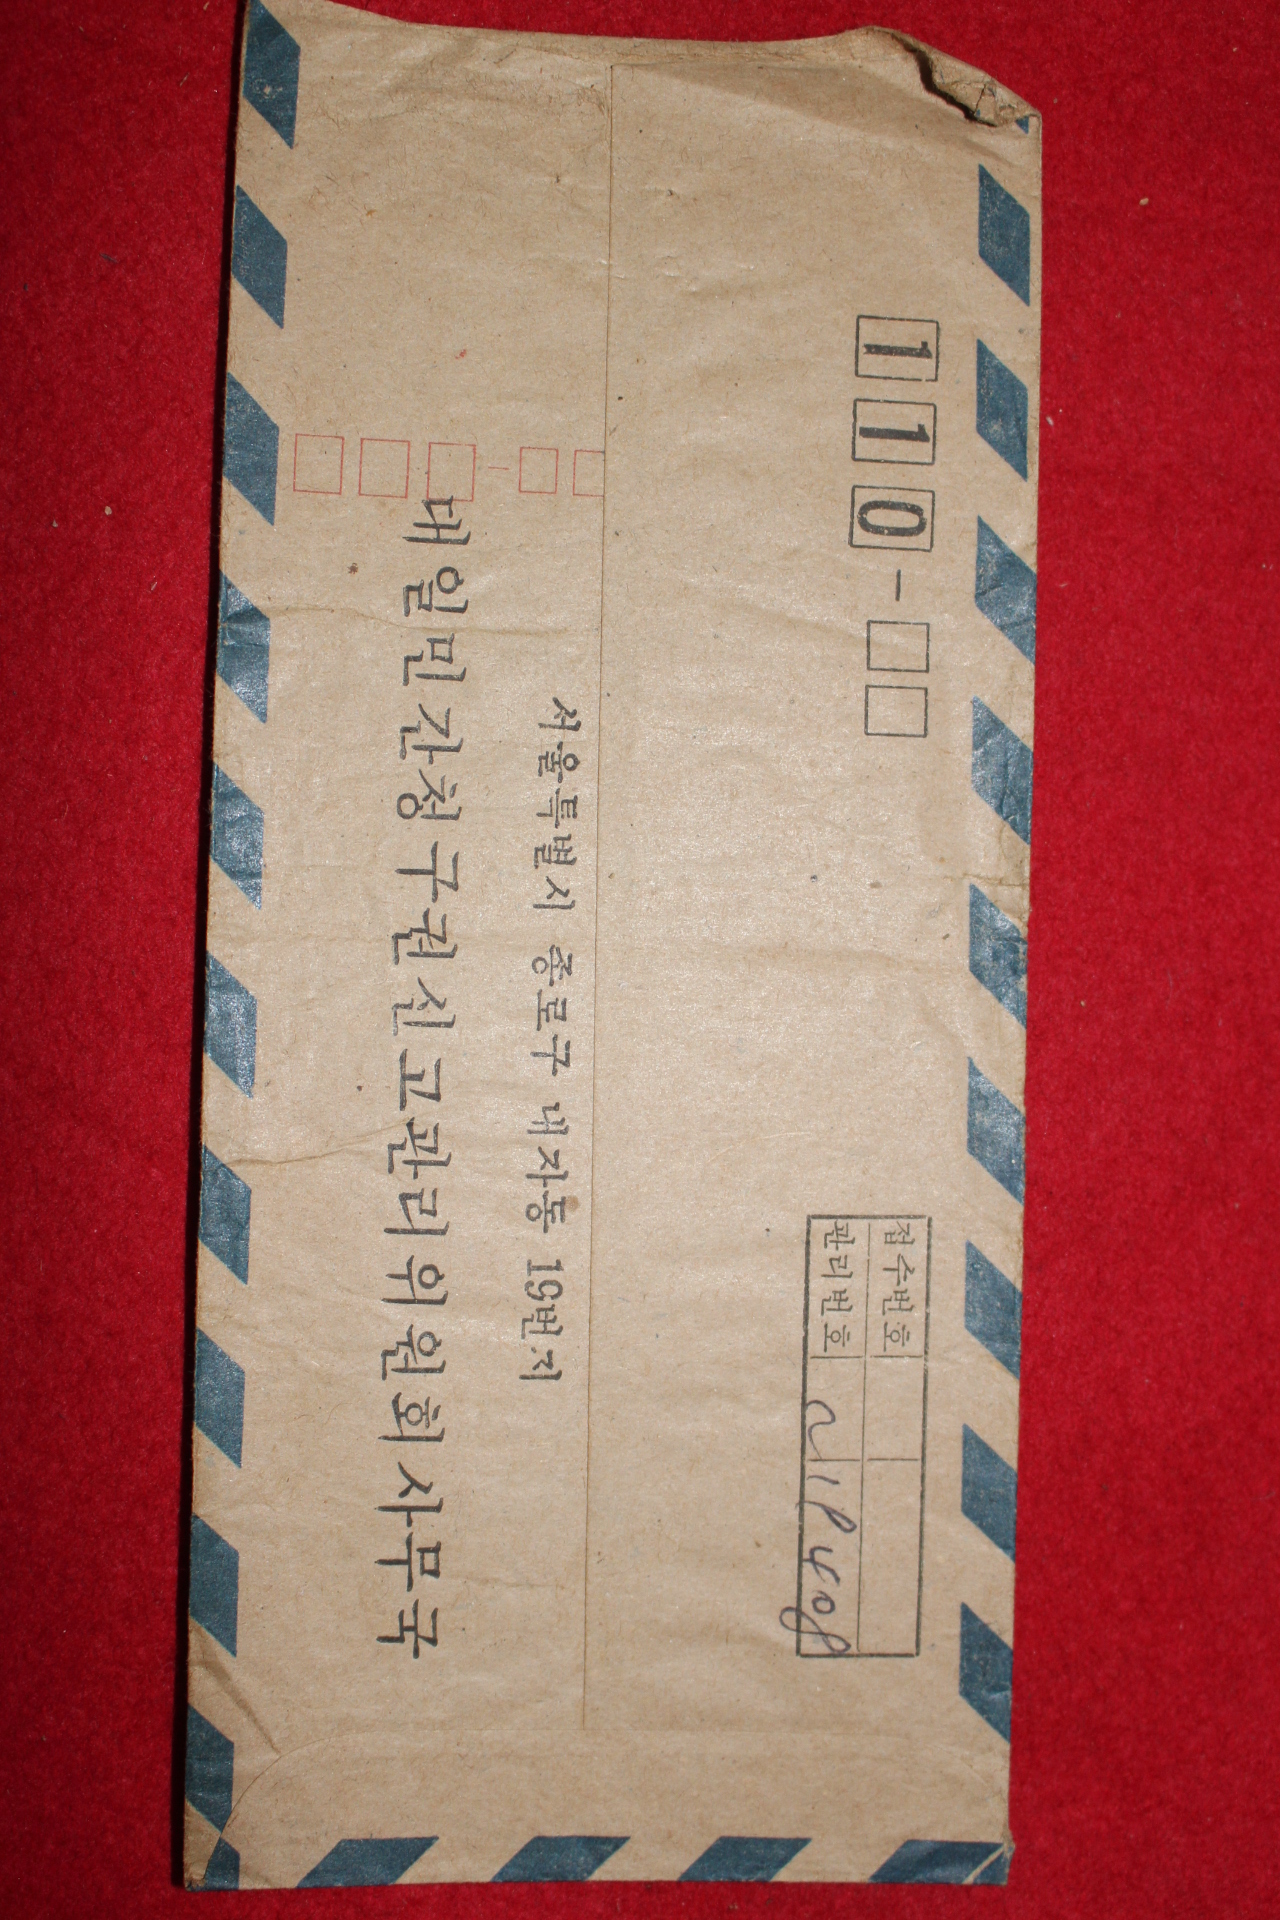 110-
접수번호
관리번호
서울특별시 종로구 내자동 19번지
대일민간청구권신고관리위원회사무국